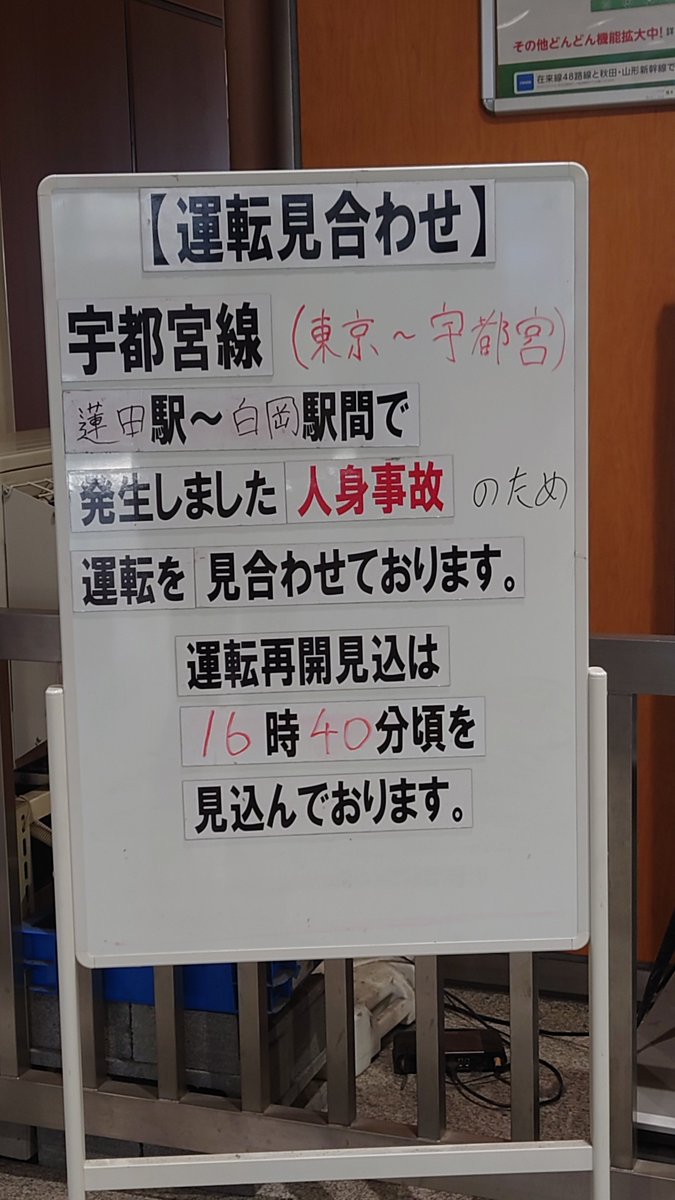 その他どんどん機能拡大中!詳
在来線48路線と秋田・山形新幹線で
【運転見合わせ】
宇都宮線 (東京～宇都宮)
蓮田駅～白岡駅間で
発生しました人身事故 のため
運転を見合わせております。
運転再開見込は
16時40分頃を
見込んでおります。